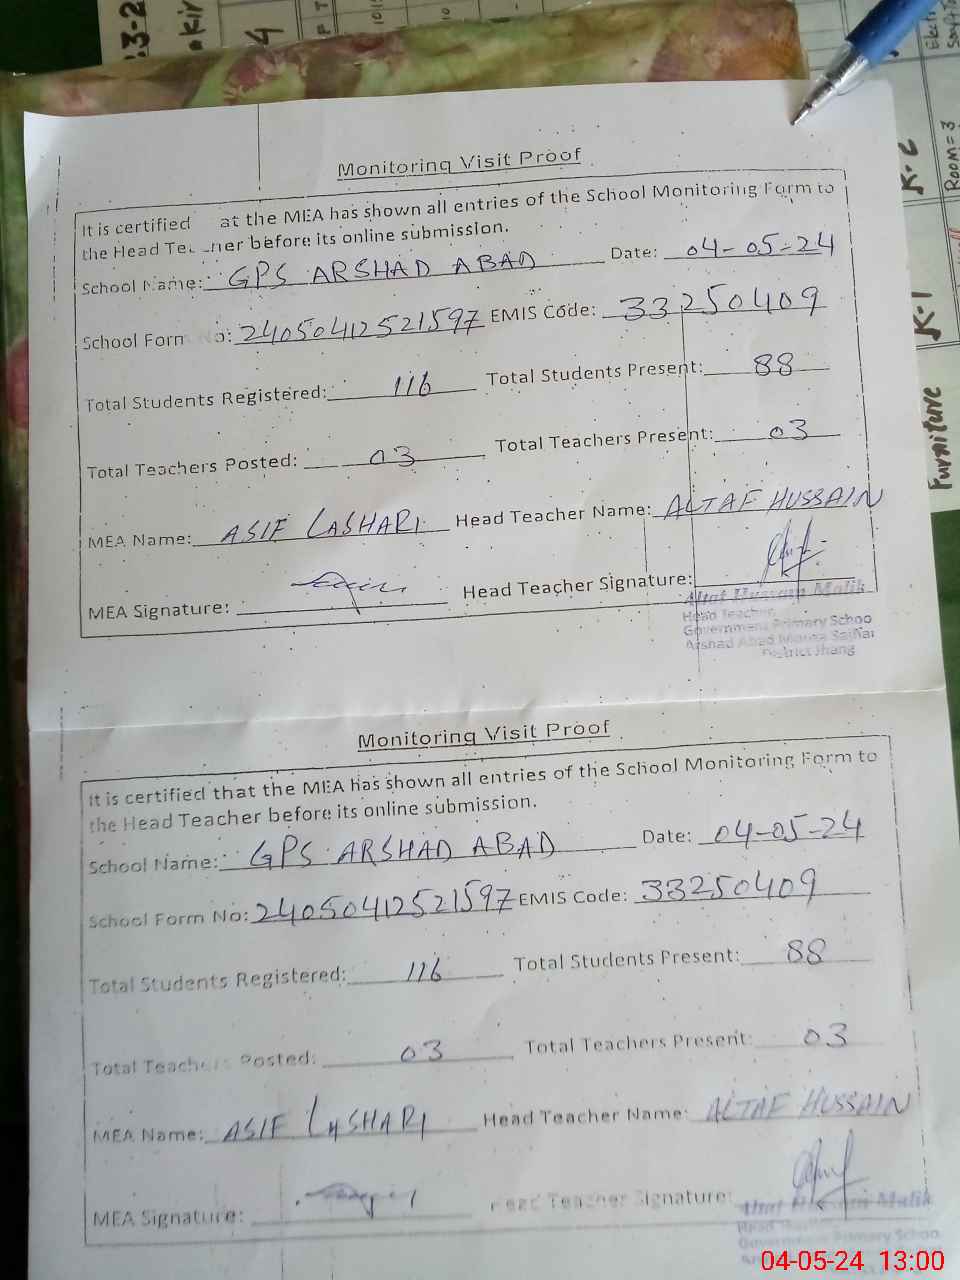 3-2
4
K-2
Room = 3
K-1
Furniture
Monitoring Visit Proof
It is certified at the MEA has shown all entries of the School Monitoring Form to
the Head Teacher before its online submission.
School Name: GPS ARSHAD ABAD Date: 04-05-24
School Form No: 24050412521597 EMIS Code: 33250409
Total Students Registered: 116 Total Students Present: 88
Total Teachers Posted: 03 Total Teachers Present: 03
MEA Name: ASIF LASHARI Head Teacher Name: ALTAF HUSSAIN
MEA Signature: Head Teacher Signature:
Altaf Hussain Malik
Head Teacher
Government Primary Schoo
Arshad Abad
District Jhang
Monitoring Visit Proof
It is certified that the MEA has shown all entries of the School Monitoring Form to
the Head Teacher before its online submission.
School Name: GPS ARSHAD ABAD Date: 04-05-24
School Form No: 24050412521597 EMIS Code: 33250409
Total Students Registered: 116 Total Students Present: 88
Total Teachers Posted: 03 Total Teachers Present: 03
MEA Name: ASIF LASHARI Head Teacher Name: ALTAF HUSSAIN
MEA Signature: Head Teacher Signature:
Altaf Hussain Malik
Head
Government Primary Schoo
04-05-24 13:00